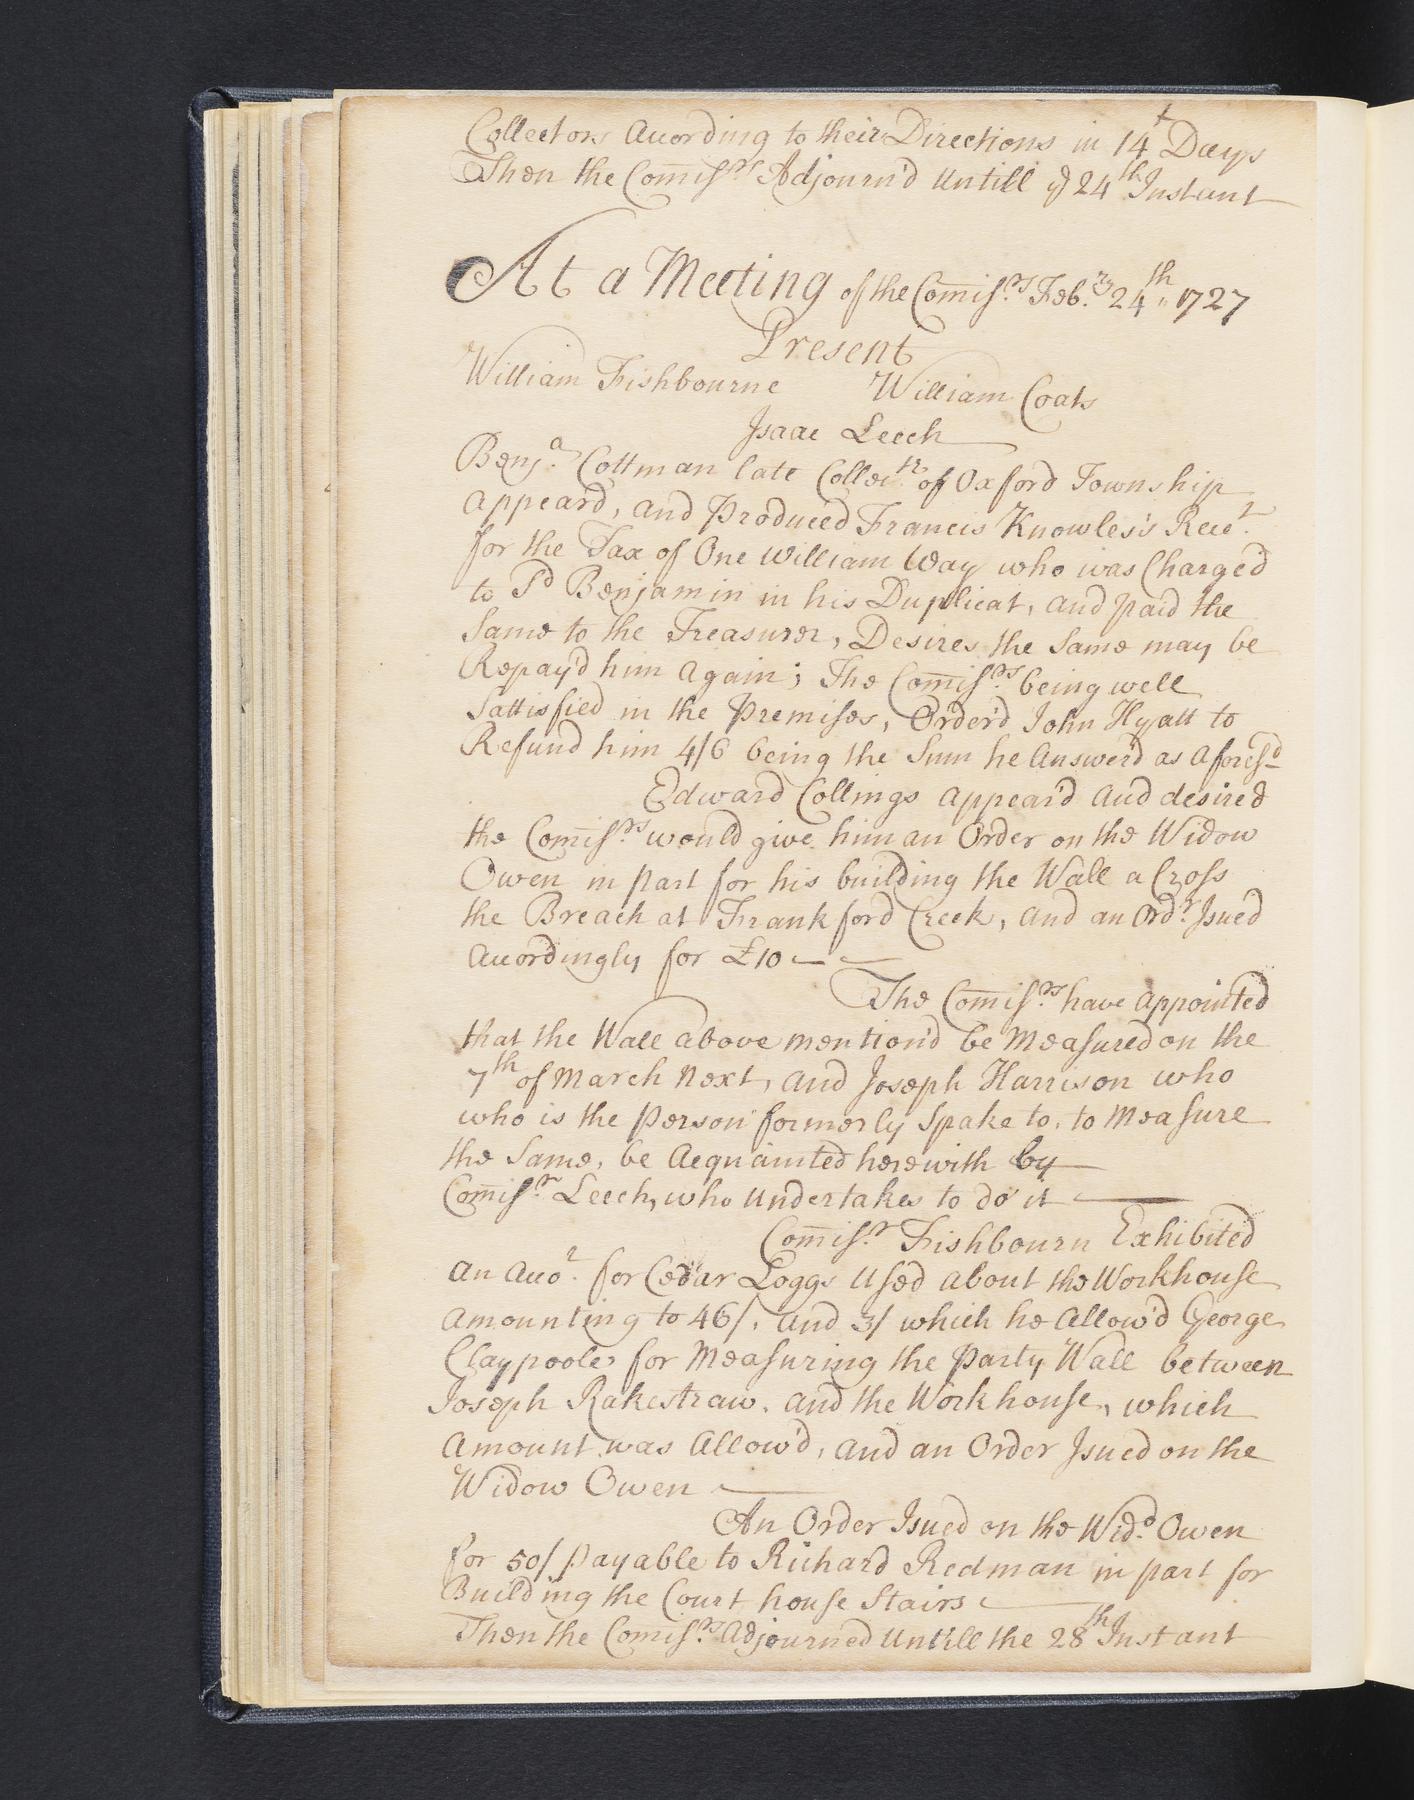 Collectors Acording to their Directions in 14t Days
Then the Comissrs Adjourn'd Untill ye 24th Instant
At a Meeting of the Comissrs Febry 24th 1727
Present
William Fishbourne William Coats
Isaac Leech
Benja Cottman late Collectr of Oxford Township
appeard, and Produced Francis Knowles's Rect
for the Tax of One William Way who was Charged
to Sd Benjamin in his Duplicat, and paid the
Same to the Treasurer, Desires the Same may be
Repay'd him Again; The Comissrs being well
Sattisfied in the Premises, Order'd John Hyatt to
Refund him 4/6 being the Sum he Answer'd as aforesd
Edward Collings appear'd and desired
the Comissrs would give him an Order on the Widow
Owen in part for his building the Wall a Cross
the Breach at Frankford Creek, and an Ordr Isued
Acordingly for £10
The Comissrs have appointed
that the Wall above mention'd be Measured on the
7th of March Next, and Joseph Harrison who
who is the Person formerly Spake to, to Measure
the Same, be Acquainted herewith by
Comissr Leech, who undertakes to do it
Comissr Fishbourn Exhibited
an Acot for Cedar Loggs Used about the Workhouse
amounting to 46/, and 3/ which he Allow'd George
Claypoole for Measuring the Party Wall between
Joseph Rakestraw, and the Workhouse, which
Amount was Allow'd, and an Order Isued on the
Widow Owen
An Order Isued on the Widd Owen
for 50/ payable to Richard Redman in part for
Building the Court house Stairs
Then the Comissrs Adjourned Untill the 28th Instant